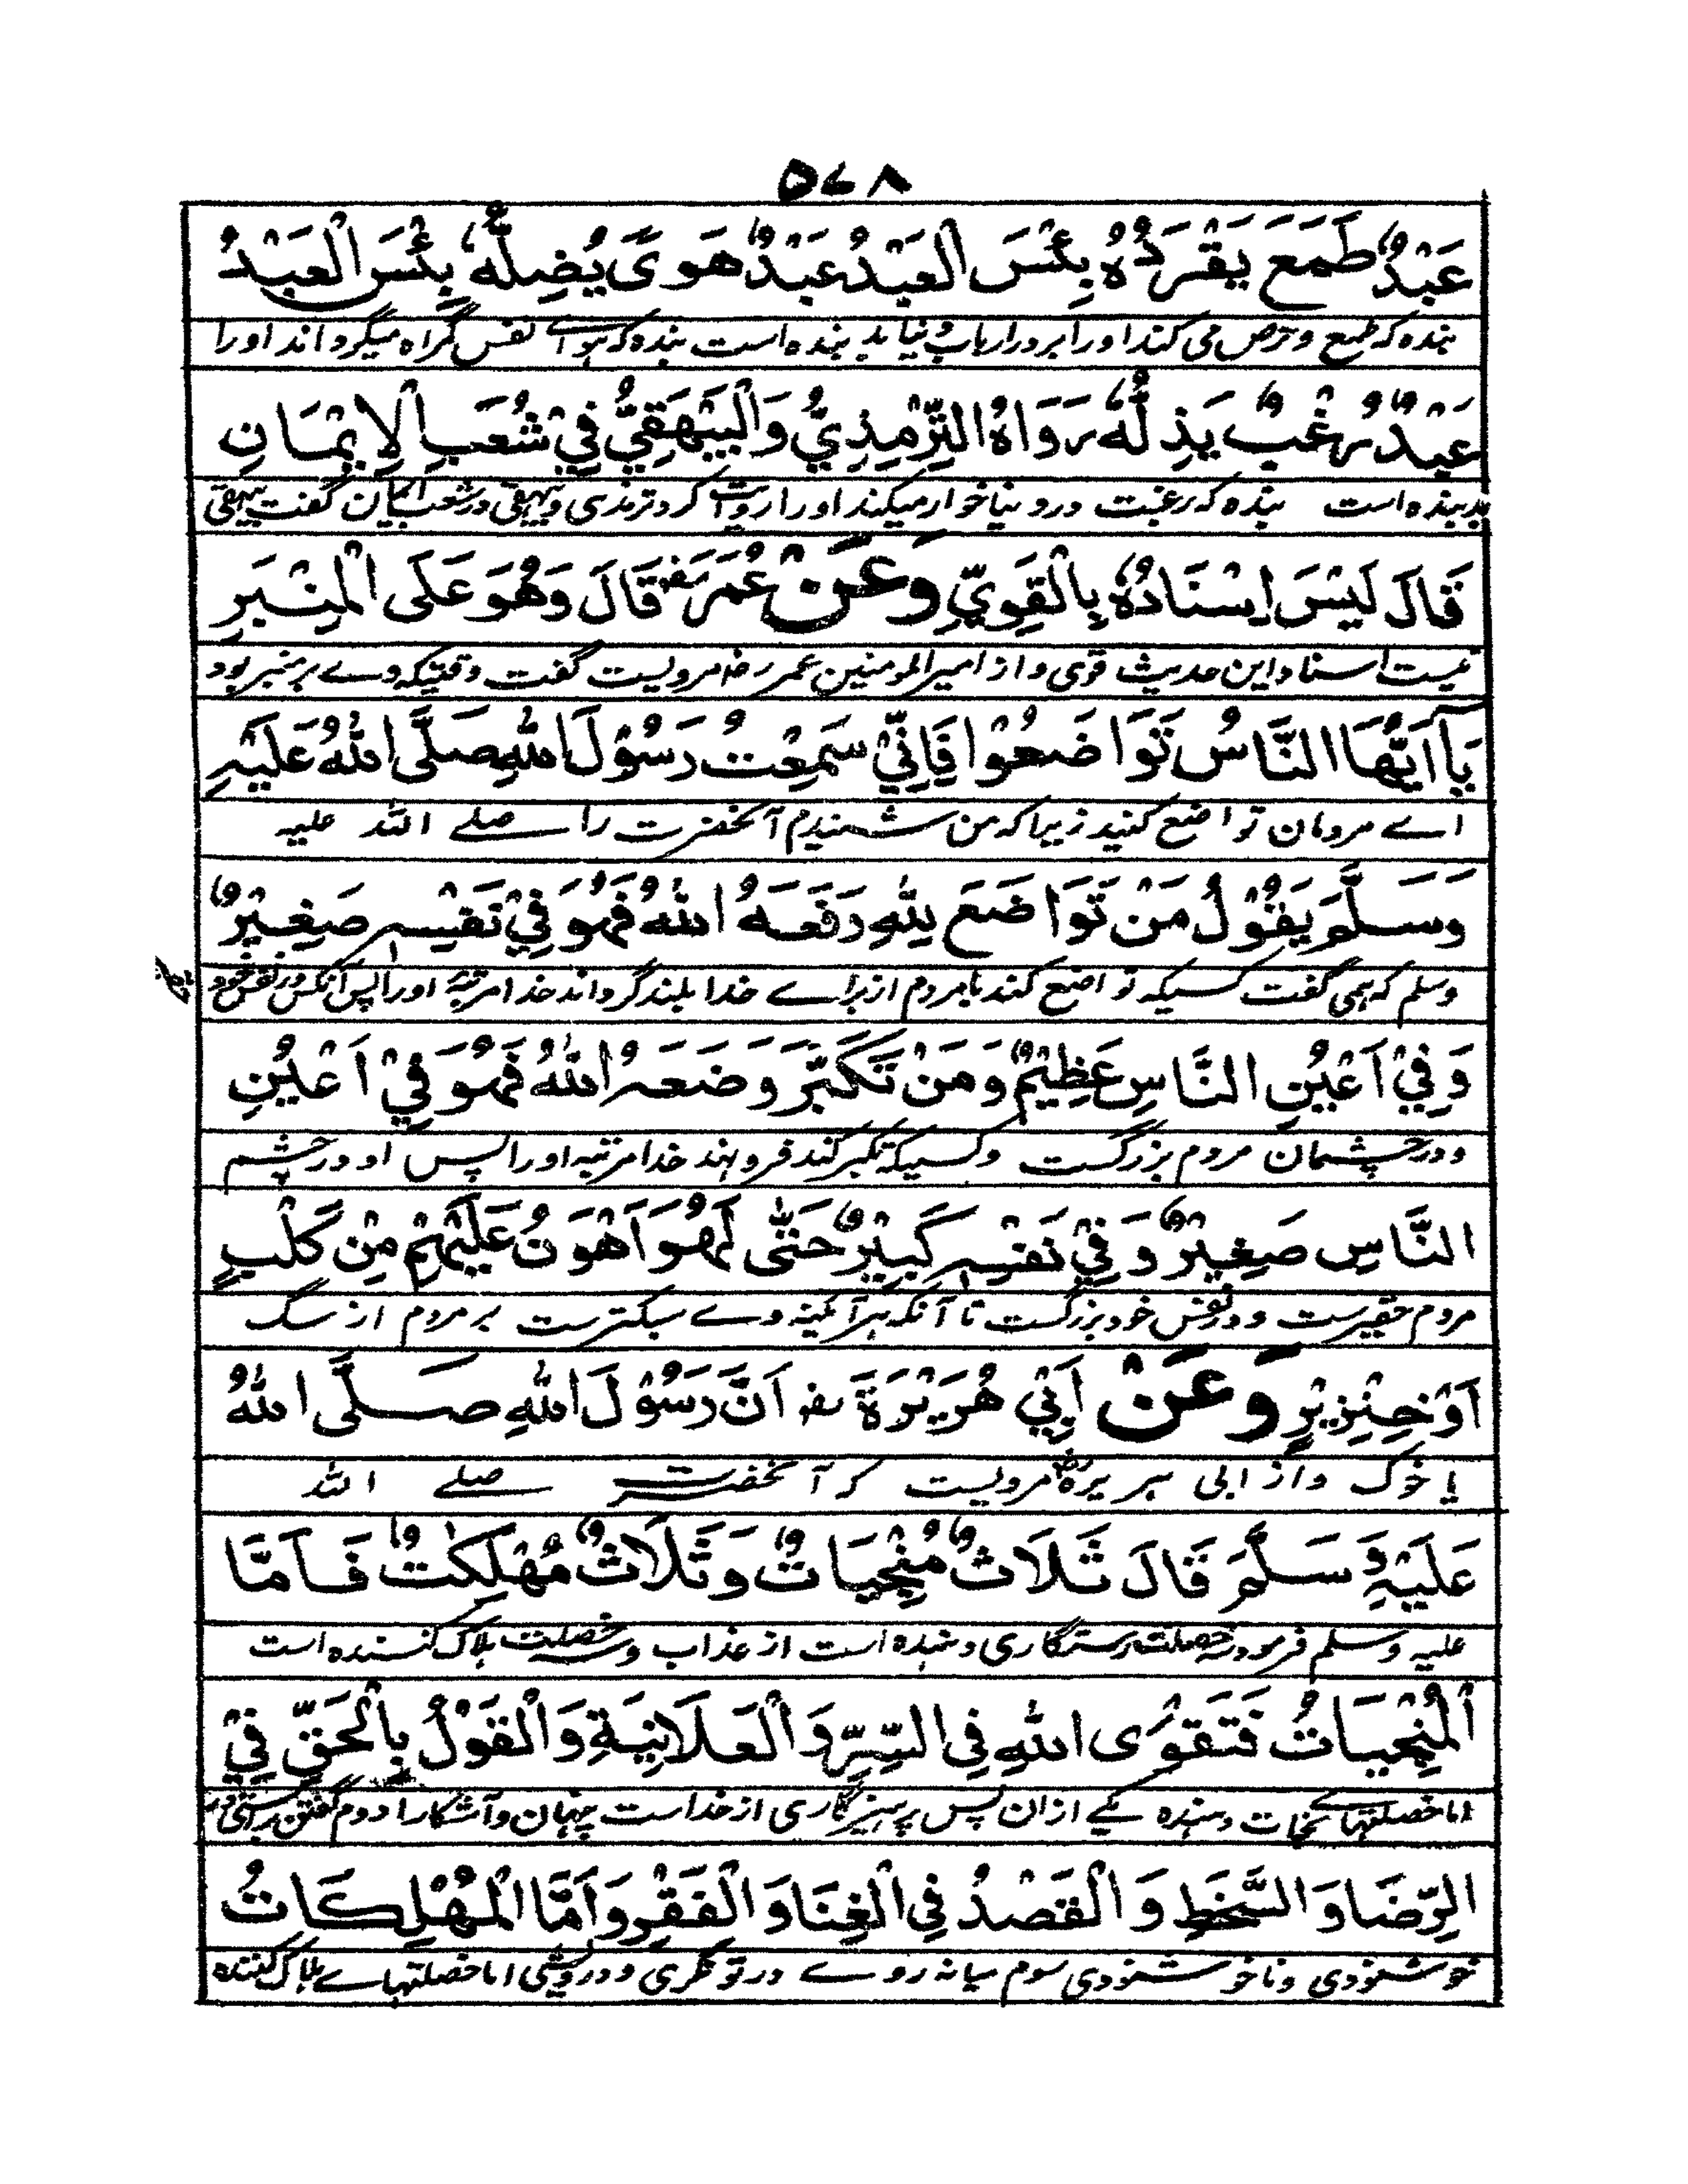 ۵۷۸
عَبْدٌ طَمَعَ يَقْرَدُهُ بِئْسَ الْعَبْدُ عَبْدٌ هَوًى يُضِلُّهُ بِئْسَ الْعَبْدُ
بنده که طمع وحرص می کند اورا بردر ارباب دنیا بد بنده است بنده که هوائے نفس گمراه میگرداند اورا
عَبْدٌ رُغْبٌ يَذِلُّهُ رَوَاهُ التِّرْمِذِيُّ وَالْبَيْهَقِيُّ فِيْ شُعَبِ الْاِيْمَانِ
بد بنده است بنده که رغبت در دنیا خوار میکند اورا روایت کرد ترمذی وبیهقی در شعب ایمان گفت بیهقی
قَالَ لَيْسَ اِسْنَادُهُ بِالْقَوِيِّ وَعَنْ عُمَرَ رض قَالَ وَهُوَ عَلَى الْمِنْبَرِ
نیست اسناد این حدیث قوی و از امیر المومنین عمر رض مرویست گفت وقتیکه وے بر منبر بود
يَاۤ اَيُّهَا النَّاسُ تَوَاضَعُوْا فَاِنِّيْ سَمِعْتُ رَسُوْلَ اللهِ صَلَّى اللهُ عَلَيْهِ
اے مردمان تواضع کنید زیرا که من شنیدم آنحضرت را صلے اللہ علیہ
وَسَلَّمَ يَقُوْلُ مَنْ تَوَاضَعَ لِلّٰهِ رَفَعَهُ اللهُ فَهُوَ فِيْ نَفْسِهٖ صَغِيْرٌ
وسلم که همی گفت کسیکه تواضع کند با مردم از براے خدا بلند گرداند خدا مرتبۂ اورا پس آنکس در نفس خود
وَفِيْ اَعْيُنِ النَّاسِ عَظِيْمٌ وَمَنْ تَكَبَّرَ وَضَعَهُ اللهُ فَهُوَ فِيْ اَعْيُنِ
و در چشمان مردم بزرگست و کسیکه تکبر کند فرو نهد خدا مرتبه اورا پس او در چشم
النَّاسِ صَغِيْرٌ وَفِيْ نَفْسِهٖ كَبِيْرٌ حَتّٰى لَهُوَ اَهْوَنُ عَلَيْهِمْ مِنْ كَلْبٍ
مردم حقیرست و در نفس خود بزرگست تا آنکه هر آئینه وے سبکترست بر مردم از سگ
اَوْ خِنْزِيْرٍ وَعَنْ اَبِيْ هُرَيْرَةَ رض اَنَّ رَسُوْلَ اللهِ صَلَّى اللهُ
یا خوک و از ابی هریره رض مرویست که آنحضرت صلے اللہ
عَلَيْهِ وَسَلَّمَ قَالَ ثَلَاثٌ مُنْجِيَاتٌ وَثَلَاثٌ مُهْلِكٰتٌ فَاَمَّا
علیہ وسلم فرمود سه خصلت رستگاری دهنده است از عذاب وسه خصلت هلاک کننده است
الْمُنْجِيَاتُ فَتَقْوَى اللهِ فِي السِّرِّ وَالْعَلَانِيَةِ وَالْقَوْلُ بِالْحَقِّ فِيْ
اما خصلتهاے نجات دهنده یکے ازان پس پرهیزگاری از خداست پنهان وآشکارا دوم گفتن براستی در
الرِّضَا وَالسَّخَطِ وَالْقَصْدُ فِي الْغِنَا وَالْفَقْرِ وَاَمَّا الْمُهْلِكَاتُ
خوشنودی وناخوشنودی سوم میانه روے در تونگری ودرویشی اما خصلتهاے هلاک کننده